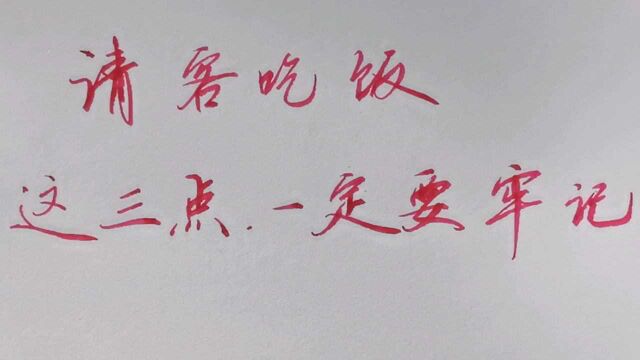 请客吃饭
这三点.一定要牢记